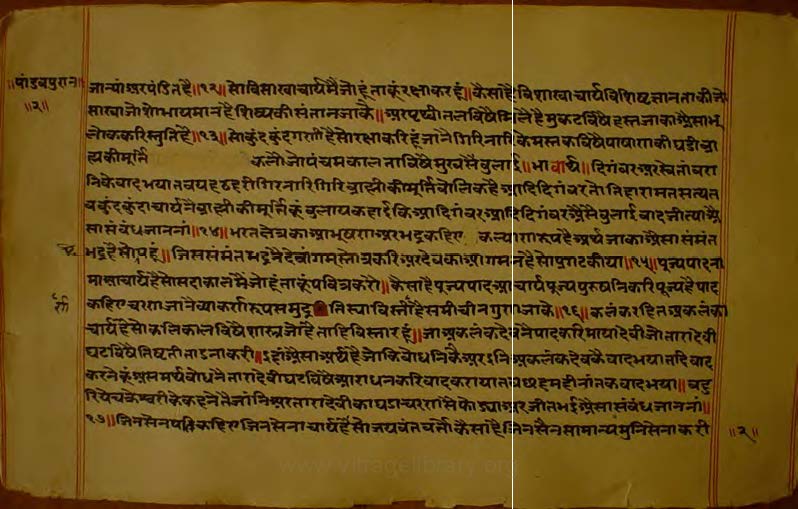 ॥पांडवपुरान॥
॥२॥
जान्यां अर पंडित है॥१२॥ सो विसाखाचार्य मैं जो हूं ताकूं रक्षा कर हूं॥ कैसा है विशाखाचार्य विशिष्ट ज्ञानता की जो
साखा जो शोभायमान है शिष्य की संतान जाकै॥ अर पृथ्वीतल विषै मिलै है मुकट विषै हस्त जाका अैसा भू
लोक करि स्तुति है॥१३॥ सो कुंदकुंदगणी है सो रक्षा करि हूं जानै गिरिनारि के मस्तक विषै पाषाण की घडी ब्रा
ह्मकी मूर्त्ति कलौ जो पंचमकाल ता विषै मुखसै बुलाई॥ भावार्थ॥ दिगंबर अर स्वेतांबरा
निकै वाद भया तब यह ठहरी गिरनारि गिरि ब्राह्मी की मूर्त्ति बोलि कहै आदि दिगंबर तो तिहारा मत सत्य त
ब कुंदकुंदाचार्य नै ब्राह्मी की मूर्त्ति कूं बुलाय कहाई कि आदि दिगंबर आदि दिगंबर अैसै बुलाई वाद जीत्या अै
सा संबंध जाननां॥१४॥ भरतक्षेत्र का आभूषण अर भद्र कहिए कल्याणरूप है अर्थ जाका अैसा संमंत
भद्र है सो जिस संमंतभद्र नै देवांगमस्तोत्र करि अर देव का आगमन है सो प्रगट कीया॥१५॥ पूज्यपाद ना
मा आचार्य है सो सदा काल मैं जो हूं ताकूं पवित्र करो॥ कैसा है पूज्यपाद आचार्य पूज्य पुरुषनि करि पूज्य है पाद
कहिए चरण जानै व्याकर्णरूप समुद्र तिस्या विस्तीर्ण है समीचीन गुण जाके॥१६॥ कलंकरहित अकलंका
चार्य है सो कलिकाल विषै शास्त्र जो है ताहि विस्तार हूं॥ जा अकलंकदेव नै पाद करि मायादेवी जो तारादेवी
घट विषै तिष्ठती ताडना करी॥ इहां अैसा अर्थ है जो कि बोधनिकै अर इनि अकलंकदेवकै वाद भया तदि वाद
करने कूं असमर्थ बोध नै तारादेवी घट विषै आराधन करि वाद कराया तब छह महीनां तक वाद भया॥ बहु
रि चक्रेश्वरी के कहने तै जांनि अर तारादेवी का घडा चरण सै फोड्या अर जीत भई अैसा संबंध जाननां॥
१७॥ जिनसेन यति कहिए जिनसेनाचार्य है सो जयवंत वर्त्तो कैसा है जिनसेन सामान्य मुनि सेना करी
॥२॥
www.vitragelibrary.org